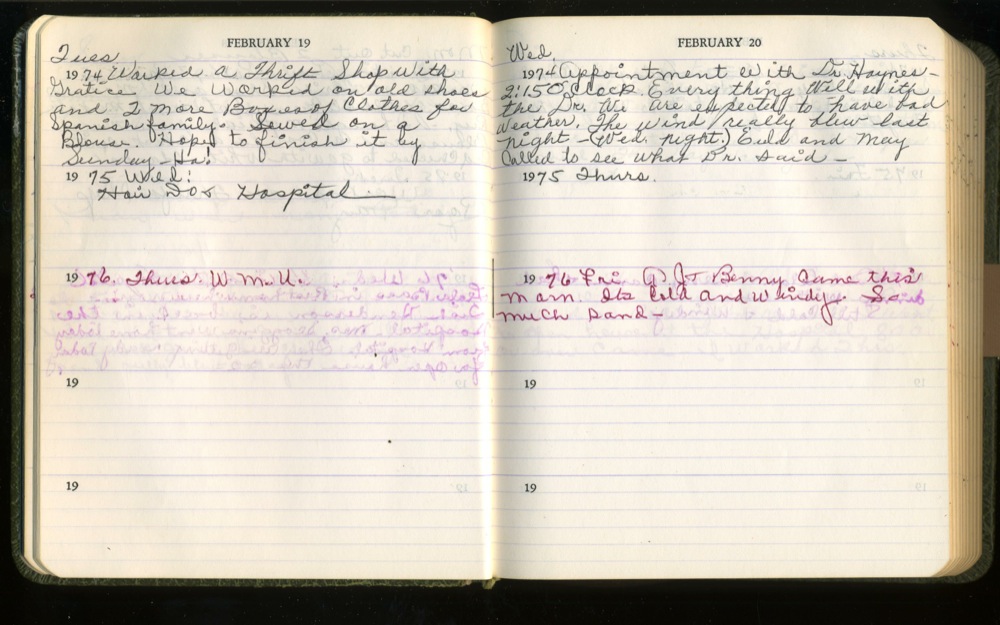 FEBRUARY 19
Tues
1974 Worked a Thrift Shop with
Gratice We Worked on old shoes
and 2 more Boxes of Clothes for
Spanish family. Sewed on a
Blouse. Hope to finish it by
Sunday - Ha!
1975 Wed.
Hair Do & Hospital
1976. Thurs. W.M.U.
19
19
FEBRUARY 20
Wed.
1974 Appointment with Dr. Haynes-
2:15 O'Clock. Every thing Well with
the Dr. We are expected to have bad
weather. The wind really blew last
night - (Wed. night.) Euld and May
Called to see what Dr. said -
1975 Thurs.
1976 Fri. Benny Came this
morn. Its Cold and Windy. So
much sand-
19
19